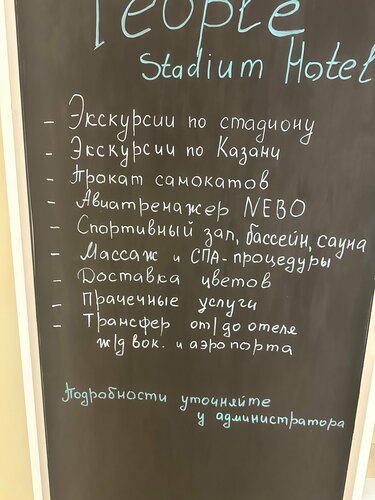 People
Stadium Hotel
- Экскурсии по стадиону
- Экскурсии по Казани
- Прокат самокатов
- Авиатренажер NEBO
- Спортивный зал, бассейн, сауна
- Массаж и СПА-процедуры
- Доставка цветов
- Прачечные услуги
- Трансфер от/до отеля
ж/д вок. и аэропорта
Подробности уточняйте
у администратора